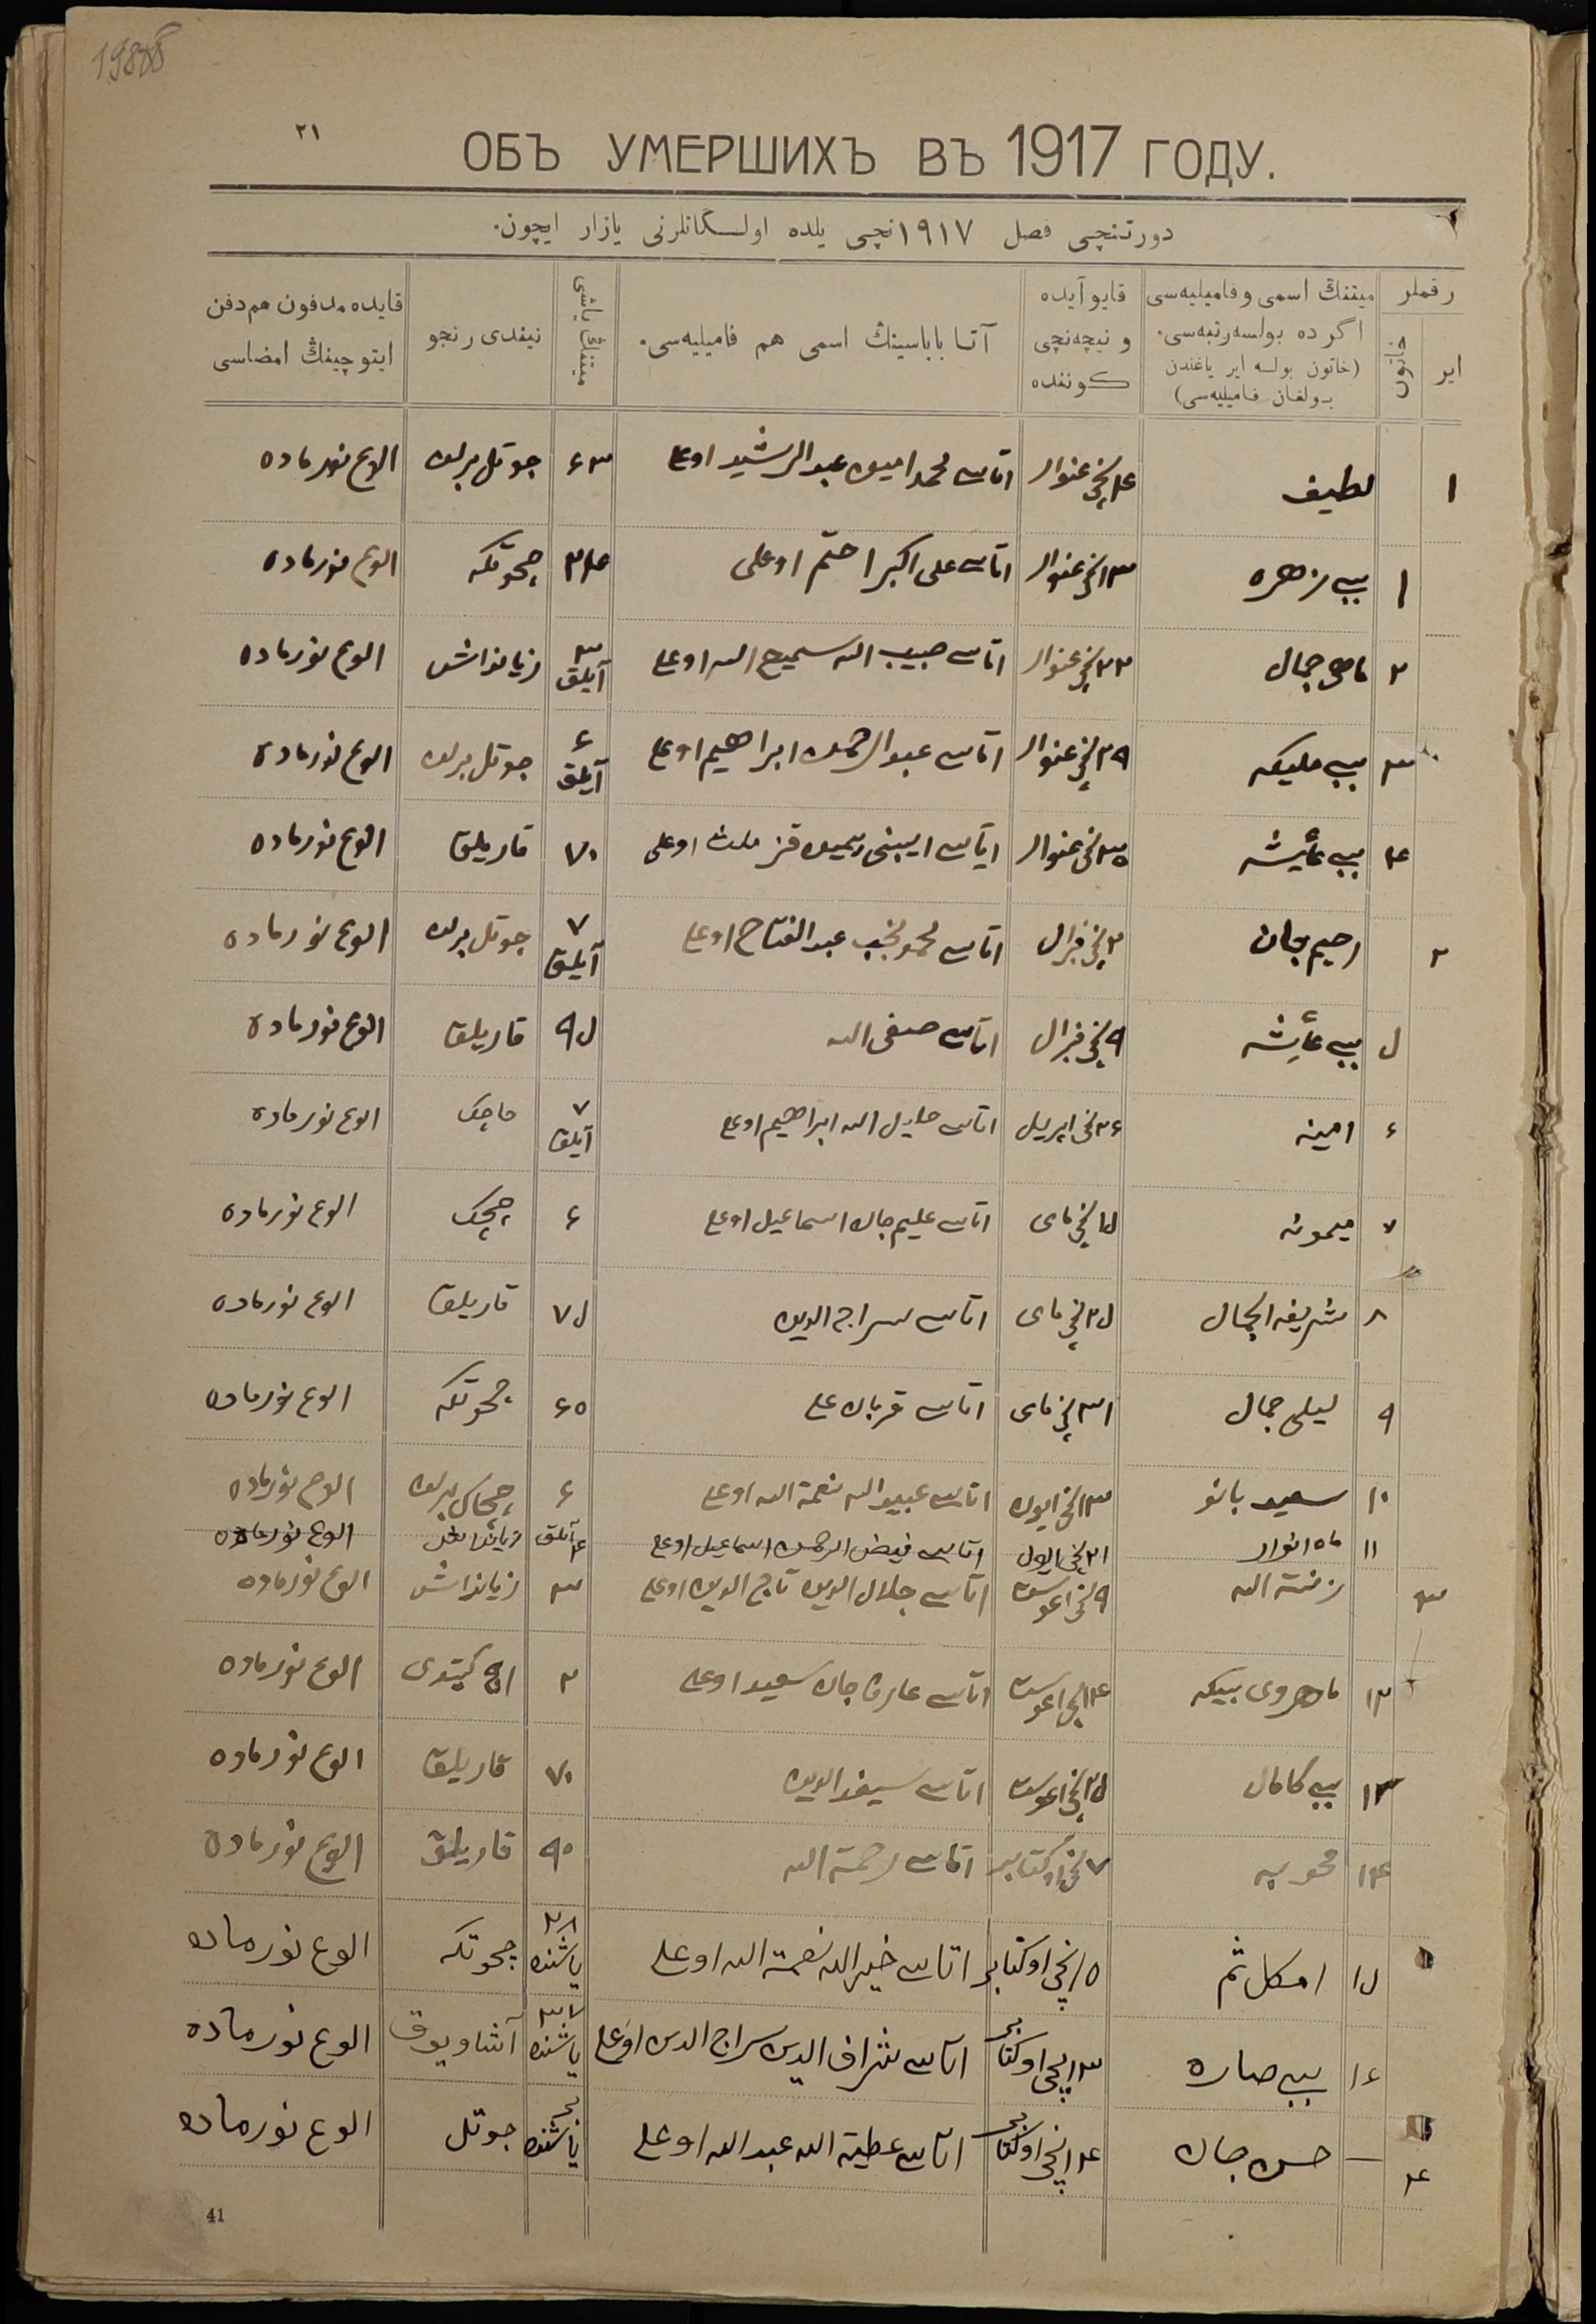 1988
۲۱
ОБЪ УМЕРШИХЪ ВЪ 1917 ГОДУ.
دورتنچی فصل ۱۹۱۷ نچی یلده اولسگانلرنی یازار ایچون.
رقملر
ایر
خاتون
میتنڭ اسمی و فامیلیه‌سی
اگر ده بولسه رتبه‌سی.
(خاتون بولسه ایر یاغندن
بولغان فامیلیه‌سی)
قایو آیده
و نیچه‌نچی
کوننده
آتا باباسینڭ اسمی هم فامیلیه‌سی.
میتنڭ یاشی
نیندی رنجو
قایده مدفون هم دفن
ایتوچینڭ امضاسی
۱ لطیف ۴ نچی غنوار اتاسی محمد امین عبد الرشید اوغلی ۶۳ جوتل برلن الوغ نورماده
۱ بیبی زهره ۱۳ نچی غنوار اتاسی علی اکبر اوغلی ۳۴ چحوتکه الوغ نورماده
۲ ماهی جمال ۲۲ نچی غنوار اتاسی حبیب الله سمیع الله اوغلی ۳ آیلق زیانداش الوغ نورماده
۳ بیبی ملیکه ۲۹ نچی غنوار اتاسی عبد الرحمن ابراهیم اوغلی ۶ آیلق جوتل برلن الوغ نورماده
۴ بیبی عائیشه نچی غنوار اتاسی اوغلی ۷۰ قاریلق الوغ نورماده
۲ رحیم جان ۲ نچی فبرال اتاسی محمد نجیب عبد الفتاح اوغلی ۷ آیلق جوتل برلن الوغ نورماده
۵ بیبی عائیشه ۹ نچی فبرال اتاسی صفی الله ۹۵ قاریلق الوغ نورماده
۶ امینه ۲۶ نچی اپریل اتاسی خلیل الله ابراهیم اوغلی ۷ آیلق چاچک الوغ نورماده
۷ میمونه ۱۵ نچی مای اتاسی علیم جان اسماعیل اوغلی ۶ چچک الوغ نورماده
۸ شریفه الجمال ۲۵ نچی مای اتاسی سراج الدین ۷۵ قاریلق الوغ نورماده
۹ لیلی جمال ۳۱ نچی مای اتاسی قربان علی ۶۵ چحوتکه الوغ نورماده
۱۰ سعید بانو ۱۳ نچی ایون اتاسی عبید الله نعمة الله اوغلی ۶ برلن الوغ نورماده
۱۱ ماه انوار ۲۱ نچی ایول اتاسی فیض الرحمن اسماعیل اوغلی ۴ آیلق زیانداش الوغ نورماده
۳ زینة الله ۹ نچی اغوست اتاسی جلال الدین تاج الدین اوغلی ۳ زیانداش الوغ نورماده
۱۲ ماهروی بیکه ۱۴ نچی اغوست اتاسی عارف جان سعید اوغلی ۲ اچ کیتدی الوغ نورماده
۱۳ بیبی کامال ۲۵ نچی اغوست اتاسی سیف الدین ۷۰ قاریلق الوغ نورماده
۱۴ محوبه ۷ نچی اوکتابر اتاسی رحمة الله ۹۰ قاریلق الوغ نورماده
۱۵ امکلثم ۱۵ نچی اوکتابر اتاسی خیر الله نعمة الله اوغلی ۲۸ یاشنده چحوتکه الوغ نورماده
۱۶ بیبی صاره ۱۳ نچی اوکتابر اتاسی شراف الدین سراج الدین اوغلی ۳۷ یاشنده آشاو یوق الوغ نورماده
۴ حسن جان ۱۴ نچی اوکتابر اتاسی عطیة الله عبد الله اوغلی ۲ یاشنده جوتل الوغ نورماده
41